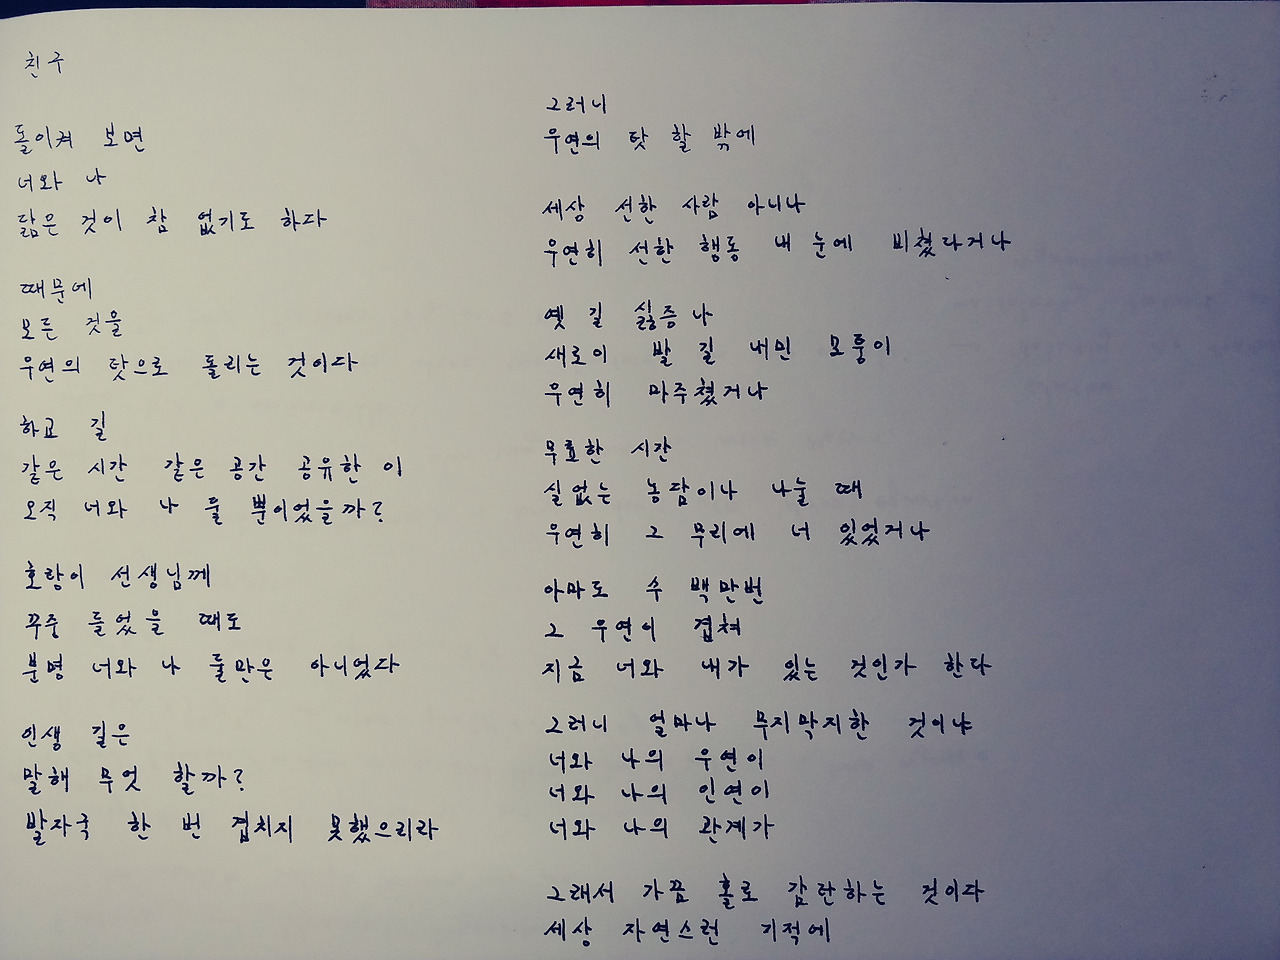 친구
돌이켜 보면
너와 나
닮은 것이 참 없기도 하다
때문에
모든 것을
우연의 탓으로 돌리는 것이다
하교 길
같은 시간 같은 공간 공유한 이
오직 너와 나 둘 뿐이었을까?
호랑이 선생님께
꾸중 들었을 때도
분명 너와 나 둘만은 아니었다
인생 길은
말해 무엇 할까?
발자국 한 번 겹치지 못했으리라
그러니
우연의 탓 할 밖에
세상 선한 사람 아니나
우연히 선한 행동 내 눈에 비쳤다거나
옛 길 싫증 나
새로이 발 길 내민 모퉁이
우연히 마주쳤거나
무료한 시간
실없는 농담이나 나눌 때
우연히 그 무리에 너 있었거나
아마도 수 백만번
그 우연이 겹쳐
지금 너와 내가 있는 것인가 한다
그러니 얼마나 무지막지한 것이냐
너와 나의 우연이
너와 나의 인연이
너와 나의 관계가
그래서 가끔 홀로 감탄하는 것이다
세상 자연스런 기적에